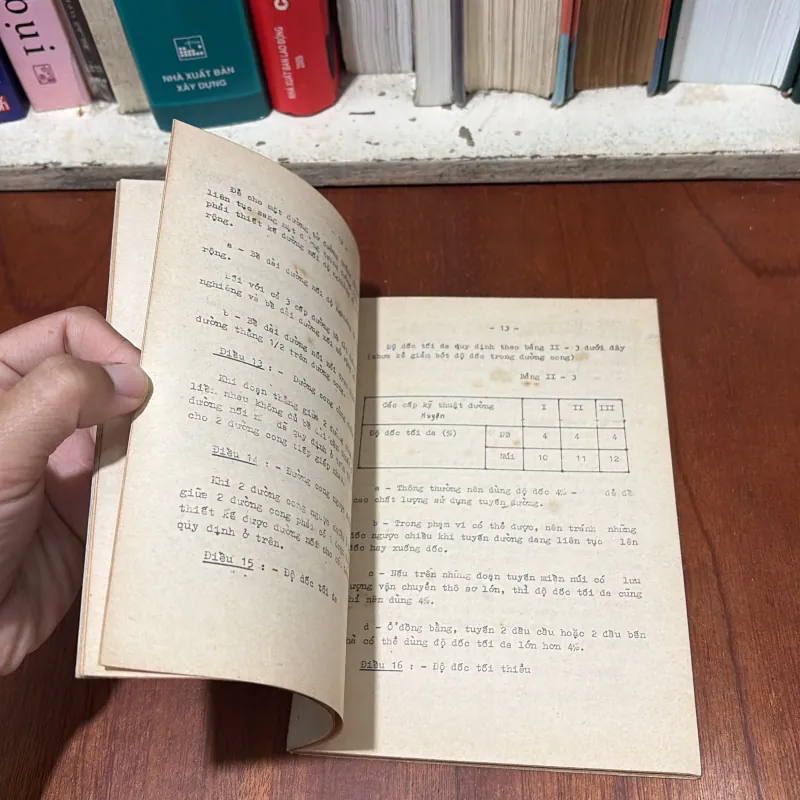 ọụi
NHÀ XUẤT BẢN
XÂY DỰNG
NHÀ XUẤT BẢN LAO ĐỘNG
2009
Để cho một đường từ đường
liên tục sang một
phải thiết kế đường nối
rộng.
a - Bề dài đường nối
rộng.
Đối với cả 3 cấp đường
nghiêng và bề dài đường nối
b - Bề dài đường nối
đường thẳng 1/2 trên đường cong.
Điều 13 : - Đường cong
Khi đoạn thẳng giữa 2
liền nhau không đủ bề
đường nối đã quy định ở
cho 2 đường cong tiếp giáp
Điều 14 : - Đường cong ngược
Khi 2 đường cong ngược chiều
giữa 2 đường cong phải có 1
thiết kế được đường nối cho
quy định ở trên.
Điều 15 : - Độ dốc tối đa
- 13 -
Độ dốc tối đa quy định theo bảng II - 3 dưới đây
(chưa kể giảm bớt độ dốc trong đường cong)
Bảng II - 3
Các cấp kỹ thuật đường Huyện I II III
Độ dốc tối đa (%) ĐB 4 4 4
Núi 10 11 12
a - Thông thường nên dùng độ dốc 4% - để đề
cao chất lượng sử dụng tuyến đường.
b - Trong phạm vi có thể được, nên tránh những
dốc ngược chiều khi tuyến đường đang liên tục lên
dốc hay xuống dốc.
c - Nếu trên những đoạn tuyến miền núi có lưu
lượng vận chuyển thô sơ lớn, thì độ dốc tối đa cũng
chỉ nên dùng 4%.
d - Ở đồng bằng, tuyến 2 đầu cầu hoặc 2 đầu bến
phà có thể dùng độ dốc tối đa lớn hơn 4%.
Điều 16 : - Độ dốc tối thiểu